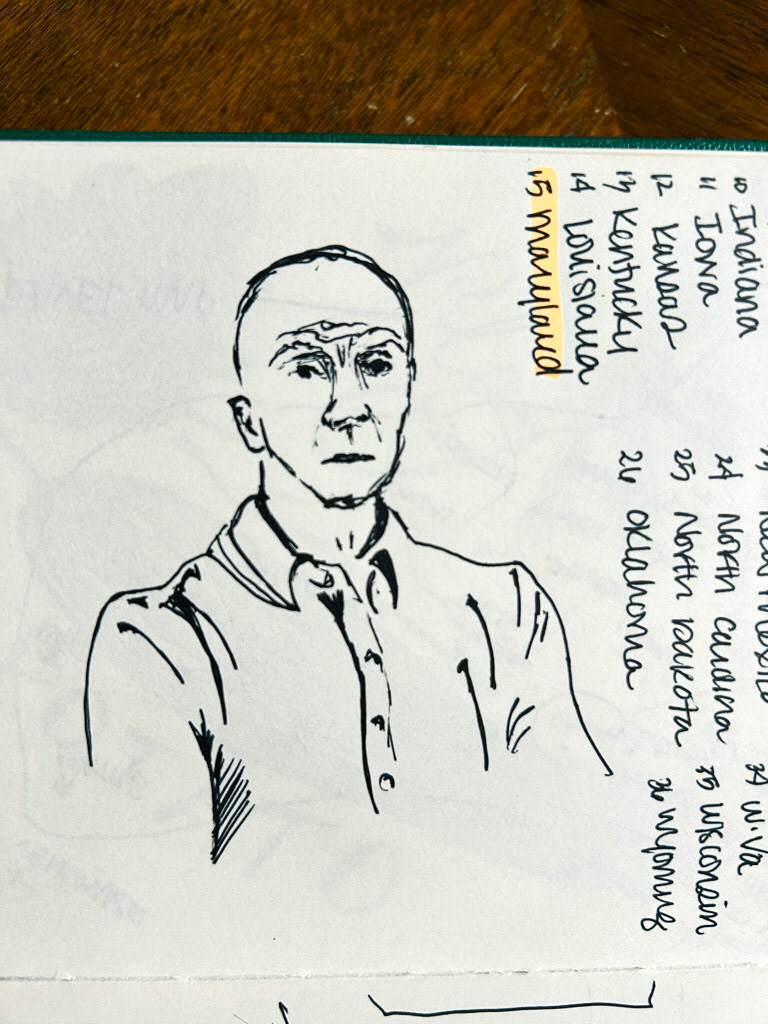 10 Indiana
11 Iowa
12 Kansas
13 Kentucky
14 Louisiana
15 Maryland
New Mexico
24 North Carolina
25 North Dakota
26 Oklahoma
34 W.Va
35 Wisconsin
36 Wyoming